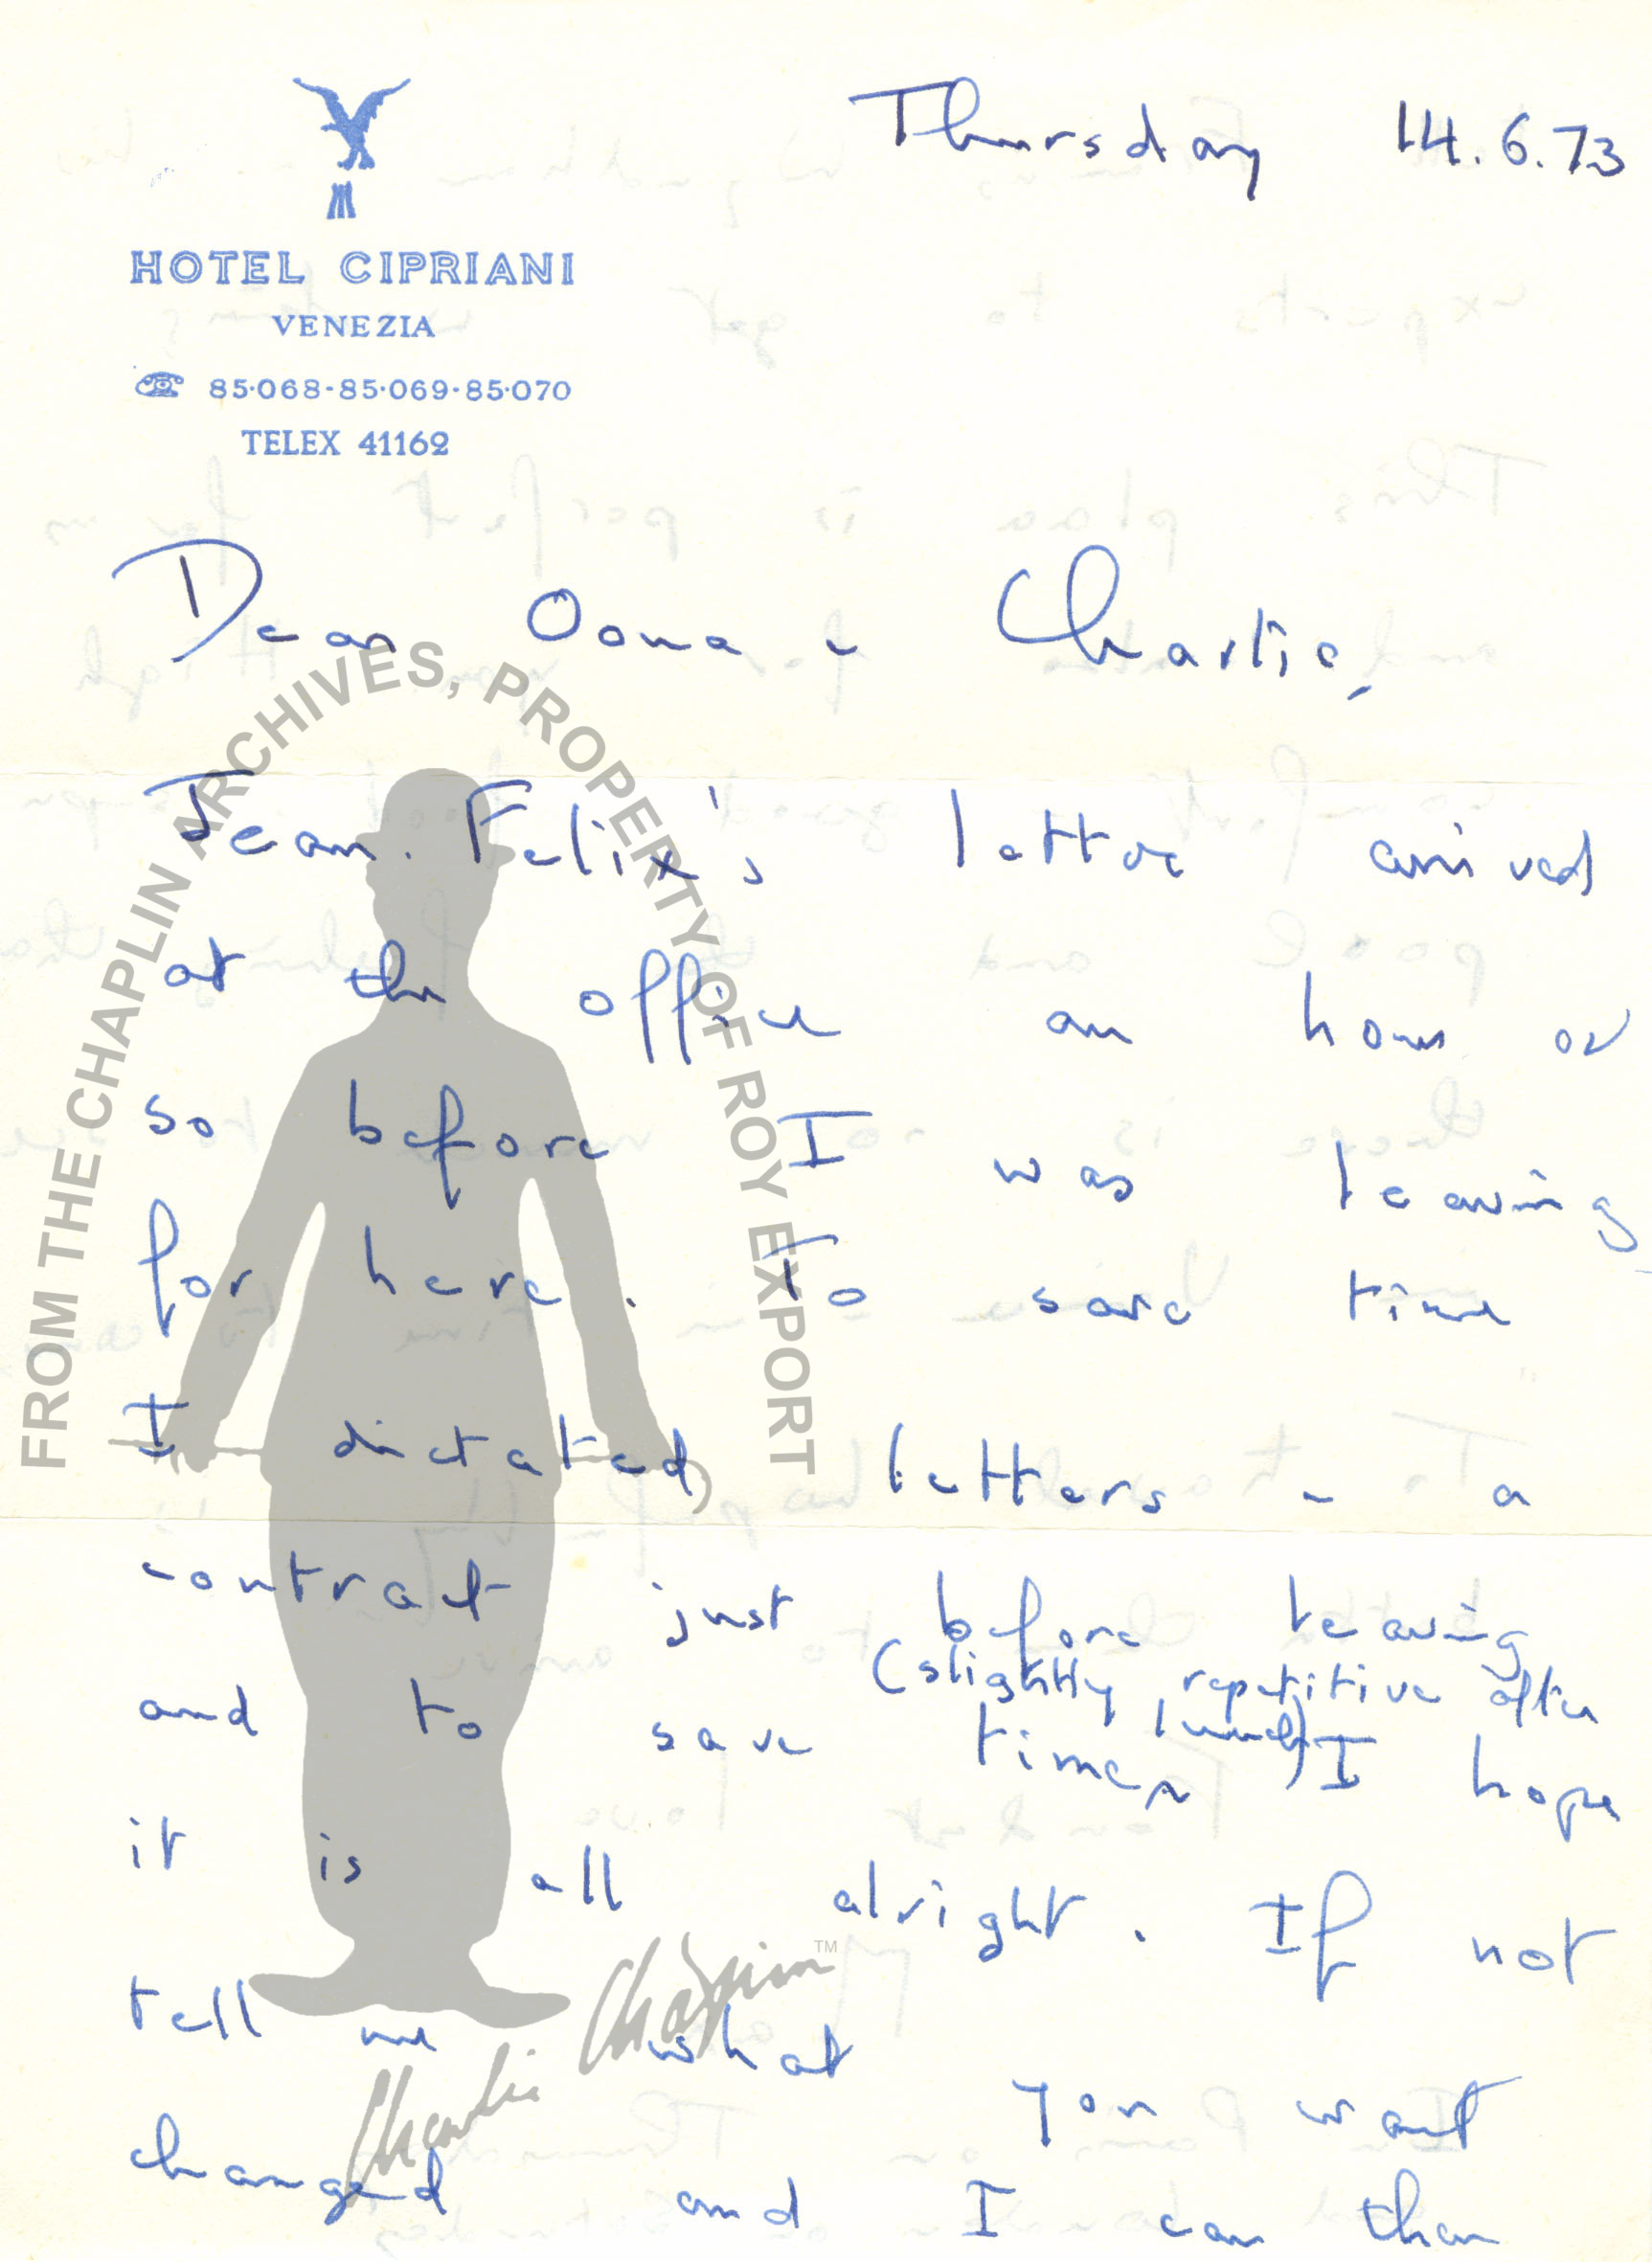 Thursday 14.6.73
HOTEL CIPRIANI
VENEZIA
85·068-85·069-85·070
TELEX 41162
Dear Oona & Charlie,
Jean. Felix's letter arrived
at the office an hour or
so before I was leaving
for here. To save time
I dictated letters & a
contract just before leaving
(slightly repetitive after
lunch)
and to save time I hope
it is all alright. If not
tell me what you want
changed and I can then
FROM THE CHAPLIN ARCHIVES, PROPERTY OF ROY EXPORT
Charlie Chaplin TM